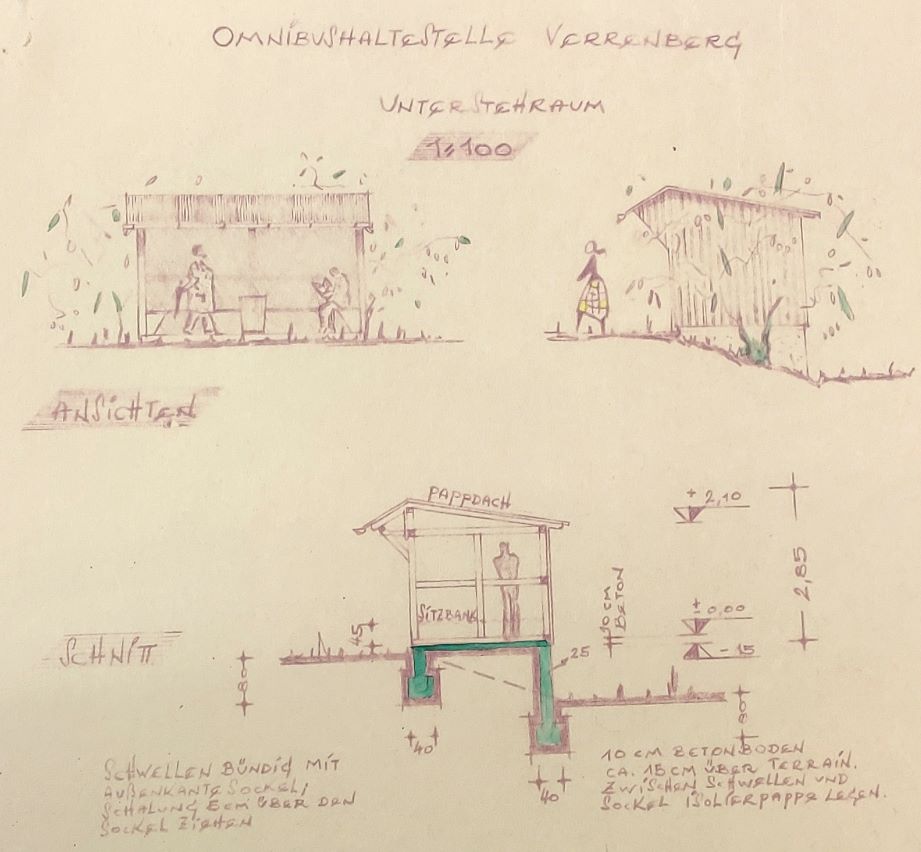 OMNIBUSHALTESTELLE VERRENBERG
UNTERSTEHRAUM
1:100
ANSICHTEN
PAPPDACH
+ 2,10
2,85
10 CM
BETON
SITZBANK
45
± 0,00
- 15
SCHNITT
25
80
80
40
40
SCHWELLEN BÜNDIG MIT
AUßENKANTE SOCKEL,
SCHALUNG 5CM ÜBER DEN
SOCKEL ZIEHEN
10 CM BETONBODEN
CA. 15CM ÜBER TERRAIN.
ZWISCHEN SCHWELLEN UND
SOCKEL ISOLIERPAPPE LEGEN.